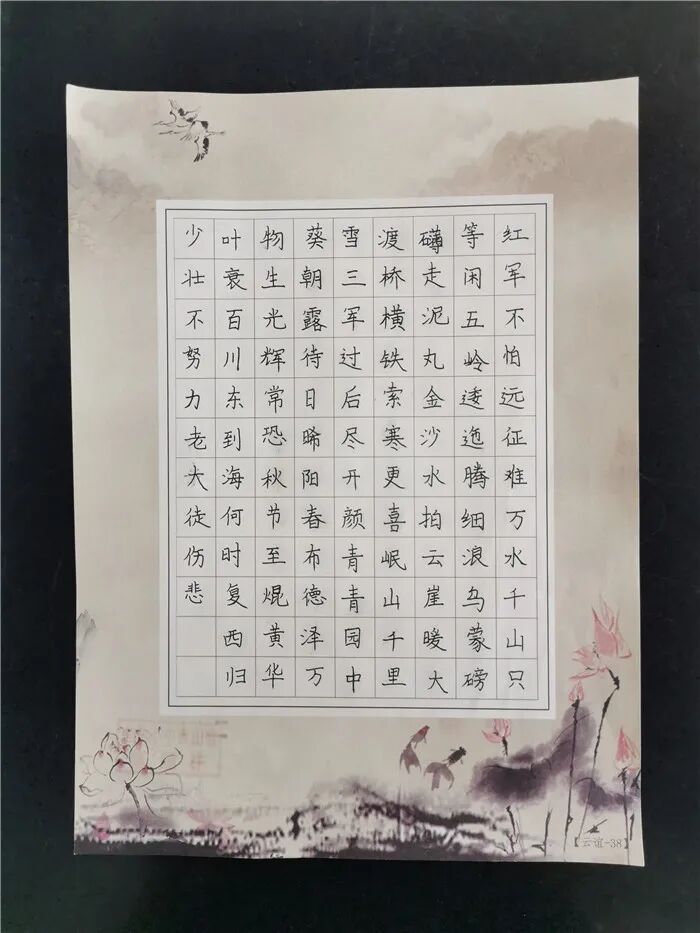 红军不怕远征难万水千山只
等闲五岭逶迤腾细浪乌蒙磅
礴走泥丸金沙水拍云崖暖大
渡桥横铁索寒更喜岷山千里
雪三军过后尽开颜青青园中
葵朝露待日晞阳春布德泽万
物生光辉常恐秋节至焜黄华
叶衰百川东到海何时复西归
少壮不努力老大徒伤悲
【云谊-38】